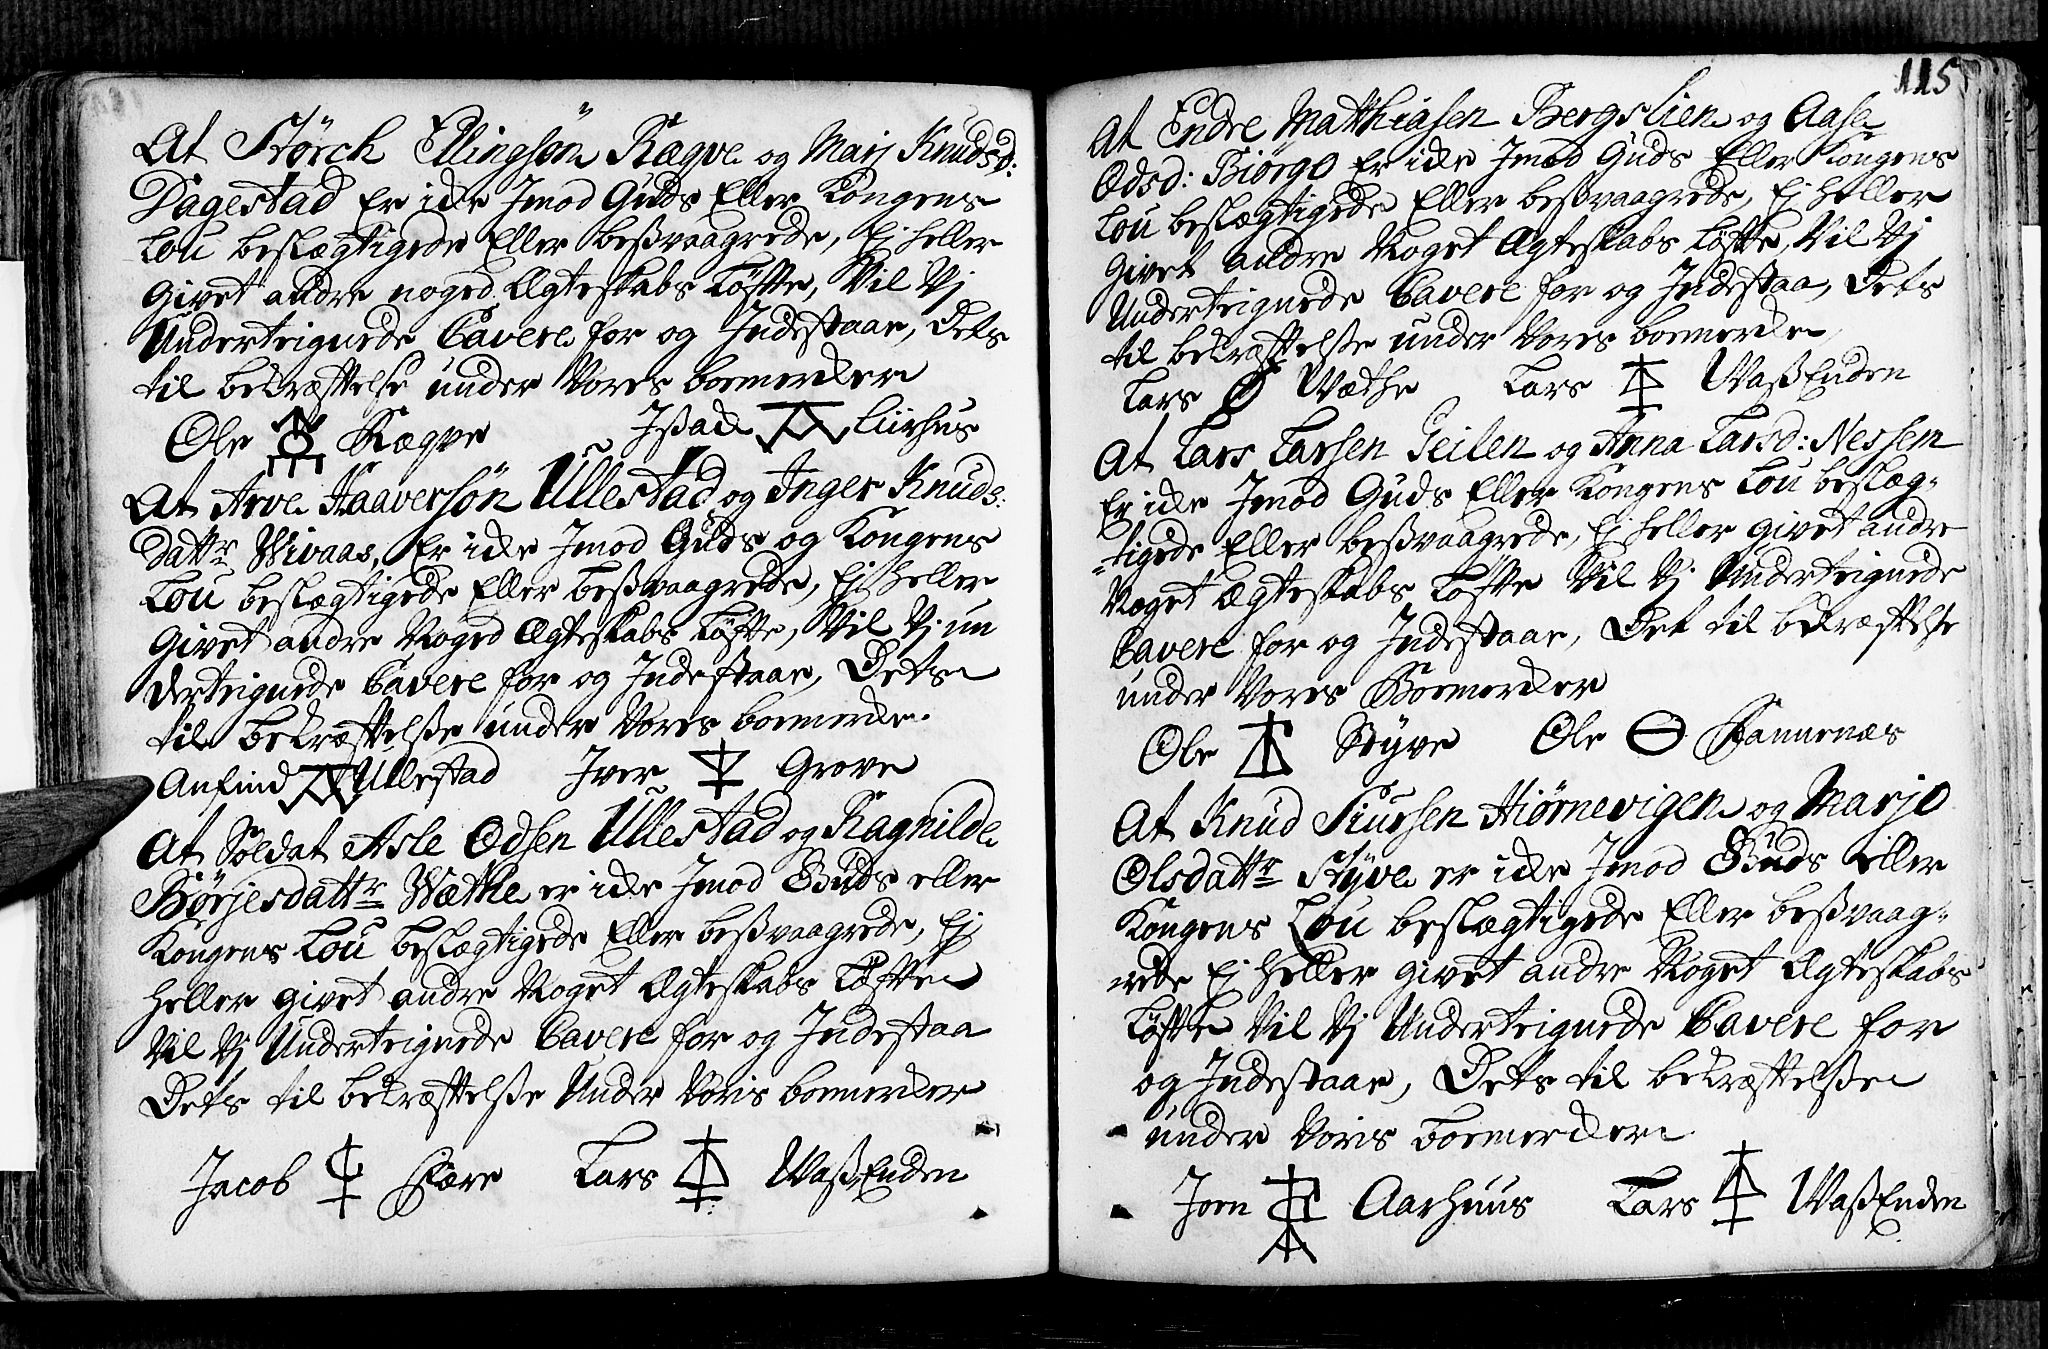 At Störch Ellingsön Rægve og Marj Knudsd:
Dagestad Er icke Jmod Guds Eller Kongens
Lou beslægtigede Eller beßvaagrede, Ej heller
Givet andre noged Ægteskabs Løffte, Vil Vj
Undertegnede Cavere for og Jndestaae, Dets
til bekræfftelse under Vores boemercker
Ole Rægve Jßack Liirhus
At Arve Haaversön Ullestad og Inger Knuds:
Dattr Wivaas, Er icke Jmod Guds og Kongens
Lou beslægtigede Eller beßvaagrede, Ej heller
Givet andre Noged Ægteskabs Løffte, Vil Vj un
dertegnede Cavere for og Jndestaae, Dets
til bekræfftelße under Vores boemercke.
Anfind Ullestad Jver Grove
At Soldat Asle Odsen Ullestad og Ragnilde
Börjesdattr Wæthe er icke Jmod Guds eller
Kongens Lou beslægtigede Eller beßvaagrede, Ej
heller givet andre Noget Ægteskabs Løffte
Vil Vj Undertegnede Cavere for og Jndestaa
Dets til bekræfftelße Under Voris boemercker
Jacob Lars WaßEnden
115
At Endre Matthiasen Bergslien og Aase
Odsd: Biørgo Er icke Jmod Guds Eller Kongens
Lou beslægtigede Eller beßvaagrede, Ej heller
Givet andre Noget Ægteskabs Løffte, Vil Vj
Undertegnede Cavere for og Jndestaa, Dets
til bekræfftelße under Vores boemercke
Lars Wæthe Lars WaßEnden
At Lars Larsen Geilen og Anna Larsd: Nessem
Er icke Jmod Guds Eller Kongens Lou beslæg-
-tigede Eller beßvaagrede, Ej heller givet andre
Noget Ægteskabs Løffte Vil Vj Undertegnede
Cavere for og Jndestaae, Det til bekræfftelse
under Vores Boemercker
Ole Styve Ole Rannenæs
At Knud Siursen Hiørnevigen og Marjo
Olsdattr Styve er icke Jmod Guds eller
Kongens Lou beslægtigede Eller beßvaag-
rede Ej heller givet andre Noget Ægteskabs
Løffte Vil Vj Undertegnede Cavere for
og Jndestaae, Dets til bekræfftelße
under Voris boemercker
Joen Aarhuus Lars WaßEnden